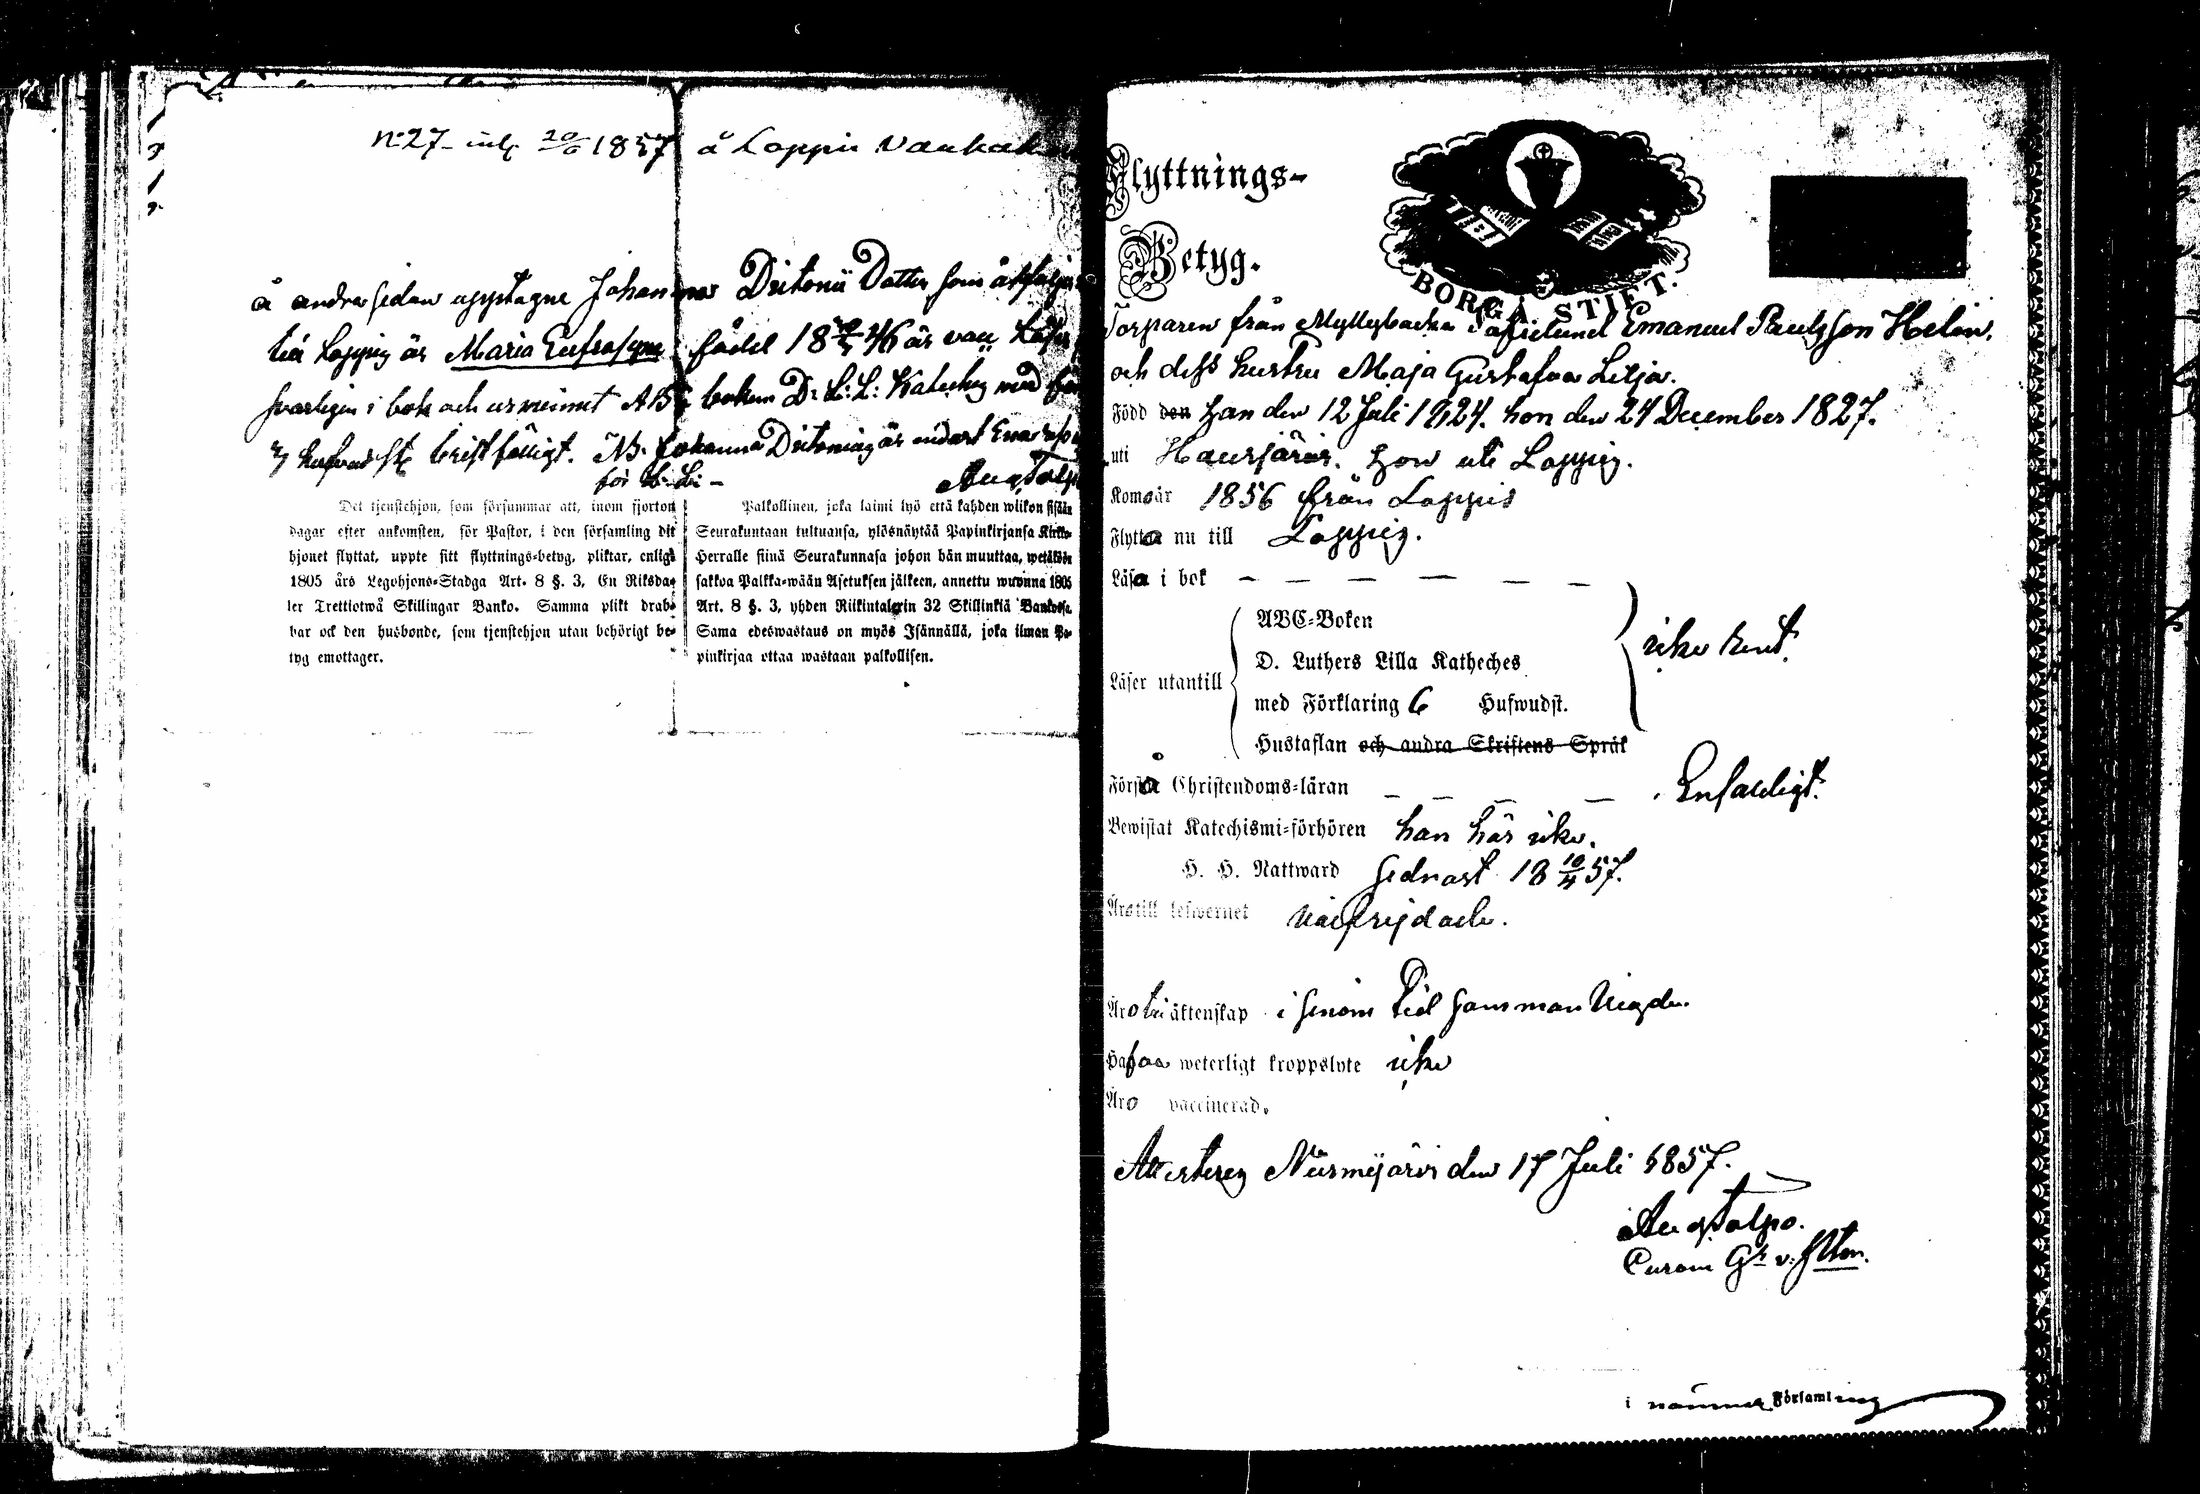 n:27 inl. 20/6 1857 å Loppis
å andra sidan upptagne Johannas Dotter som åtföljer
till Loppis är Maria Eufrosyne född 18 46 är vacc. Läser
i bok och urminnet ABC boken D. L. L. Kateches med
bristfälligt. NB. Johanna är
för
Det tjenstehjon, som försummar att, inom fjorton
dagar efter ankomsten, för Pastor, i den församling dit
hjonet flyttat, uppte sitt flyttnings-betyg, pliktar, enligt
1805 års Legohjons-Stadga Art. 8 §. 3, En Riksda-
ler Trettiotwå Skillingar Banko. Samma plikt drab-
bar ock den husbonde, som tjenstehjon utan behörigt be-
tyg emottager.
Palkollinen, joka laimi lyö että kahden wiikon sisään
Seurakuntaan tultuansa, ylösnäytää Papinkirjansa Kirkko-
Herralle siinä Seurakunnasa johon hän muuttaa, wetäköön
sakkoa Palkka-wään Asetuksen jälkeen, annettu wuonna 1805
Art. 8 §. 3, yhden Riikintalerin 32 Skillinkiä Bankosa.
Sama edeswastaus on myös Isännällä, joka ilman Pa-
pinkirjaa ottaa wastaan palkollisen.
Flyttnings-
Betyg.
BORGÅ STIFT.
Torparen från Myllybacka Emanuel Paulsson Helin.
och dess hustru Maja Gustafva Lilja.
Född den han den 12 Juli 1824. hon den 24 December 1827.
uti Hausjärvi. hon uti Loppis.
Kom år 1856 från Loppis
Flytta nu till Loppis.
Läsa i bok — — — — — —
ABC-Boken
D. Luthers Lilla Katheches
Läser utantill
med Förklaring 6 Hufwudst.
Hustaflan och andra Skriftens Språk
icke känt.
Förstå Christendoms-läran — — — — Enfaldigt.
Bewistat Katechismi-förhören han här icke.
H. H. Nattward sednast 18 10/4 57.
Äro till lefwernet välfrejdade.
Äro till äktenskap i sinom tid samman vigde.
Hafva weterligt kroppslyte icke
Äro vaccinerad.
Attesteras Nurmijärvi den 17 Juli 1857.
Aug. Talpo.
i nämnde Församling